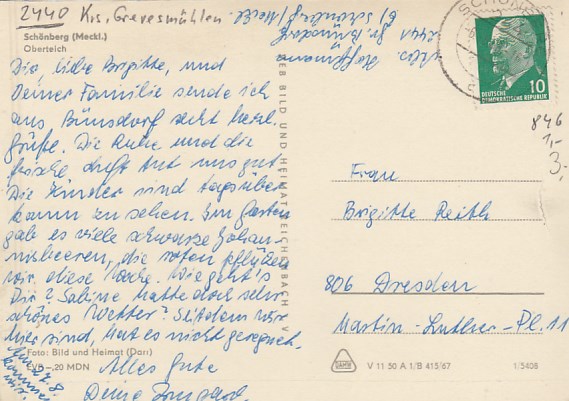 2440 Krs. Grevesmühlen
Schönberg (Meckl.)
Oberteich
Dir, liebe Brigitte, und
Deiner Familie sende ich
aus Bünsdorf recht herzl.
Grüße. Die Ruhe und die
frische Luft tut uns gut.
Die Kinder sind tagsüber
kaum zu sehen. Im Garten
gab es viele schwarze Johan-
nisbeeren, die roten pflückten
wir diese Woche. Wie geht's
Dir? Sabine hatte doch sehr
schönes Wetter? Seitdem wir
hier sind, hat es nicht geregnet.
Alles Gute
Deine Irmgard.
Foto: Bild und Heimat (Darr)
EVB –,20 MDN
Abs. Hoffmann
2441 Gr. Bünsdorf
b/ Schönberg/Meckl.
VEB BILD UND HEIMAT REICHENBACH I. V.
SCHÖNB
10
DEUTSCHE
DEMOKRATISCHE REPUBLIK
846
1,-
3,-
Frau
Brigitte Reith
806 Dresden
Martin-Luther-Pl. 11
V 11 50 A 1/B 415/67
1/5408